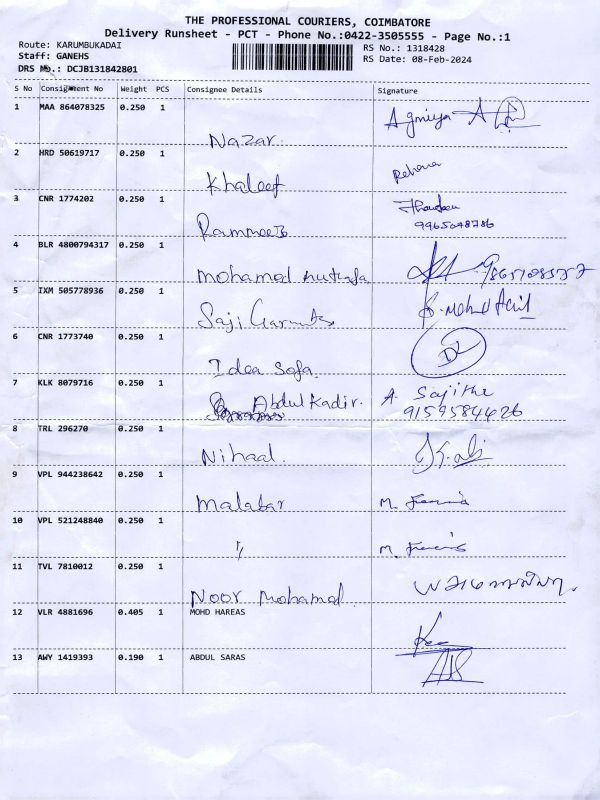 THE PROFESSIONAL COURIERS, COIMBATORE
Delivery Runsheet - PCT - Phone No.:0422-3505555 - Page No.:1
Route: KARUMBUKADAI
RS No.: 1318428
Staff: GANEHS
RS Date: 08-Feb-2024
DRS No.: DCJB131842801
S No Consignment No Weight PCS Consignee Details Signature
1 MAA 864078325 0.250 1
Nazar
2 HRD 50619717 0.250 1
Khaleef Rehana
3 CNR 1774202 0.250 1
9965048786
4 BLR 4800794317 0.250 1
Mohamed
5 IXM 505778936 0.250 1
Saji
6 CNR 1773740 0.250 1
Idea Sofa
7 KLK 8079716 0.250 1
Abdul Kadir. A. Sajitha
9159584426
8 TRL 296270 0.250 1
Nihaal.
9 VPL 944238642 0.250 1
Malabar M.
10 VPL 521248840 0.250 1
" M.
11 TVL 7810012 0.250 1
Noor Mohamed
12 VLR 4881696 0.405 1 MOHD HAREAS
13 AWY 1419393 0.190 1 ABDUL SARAS